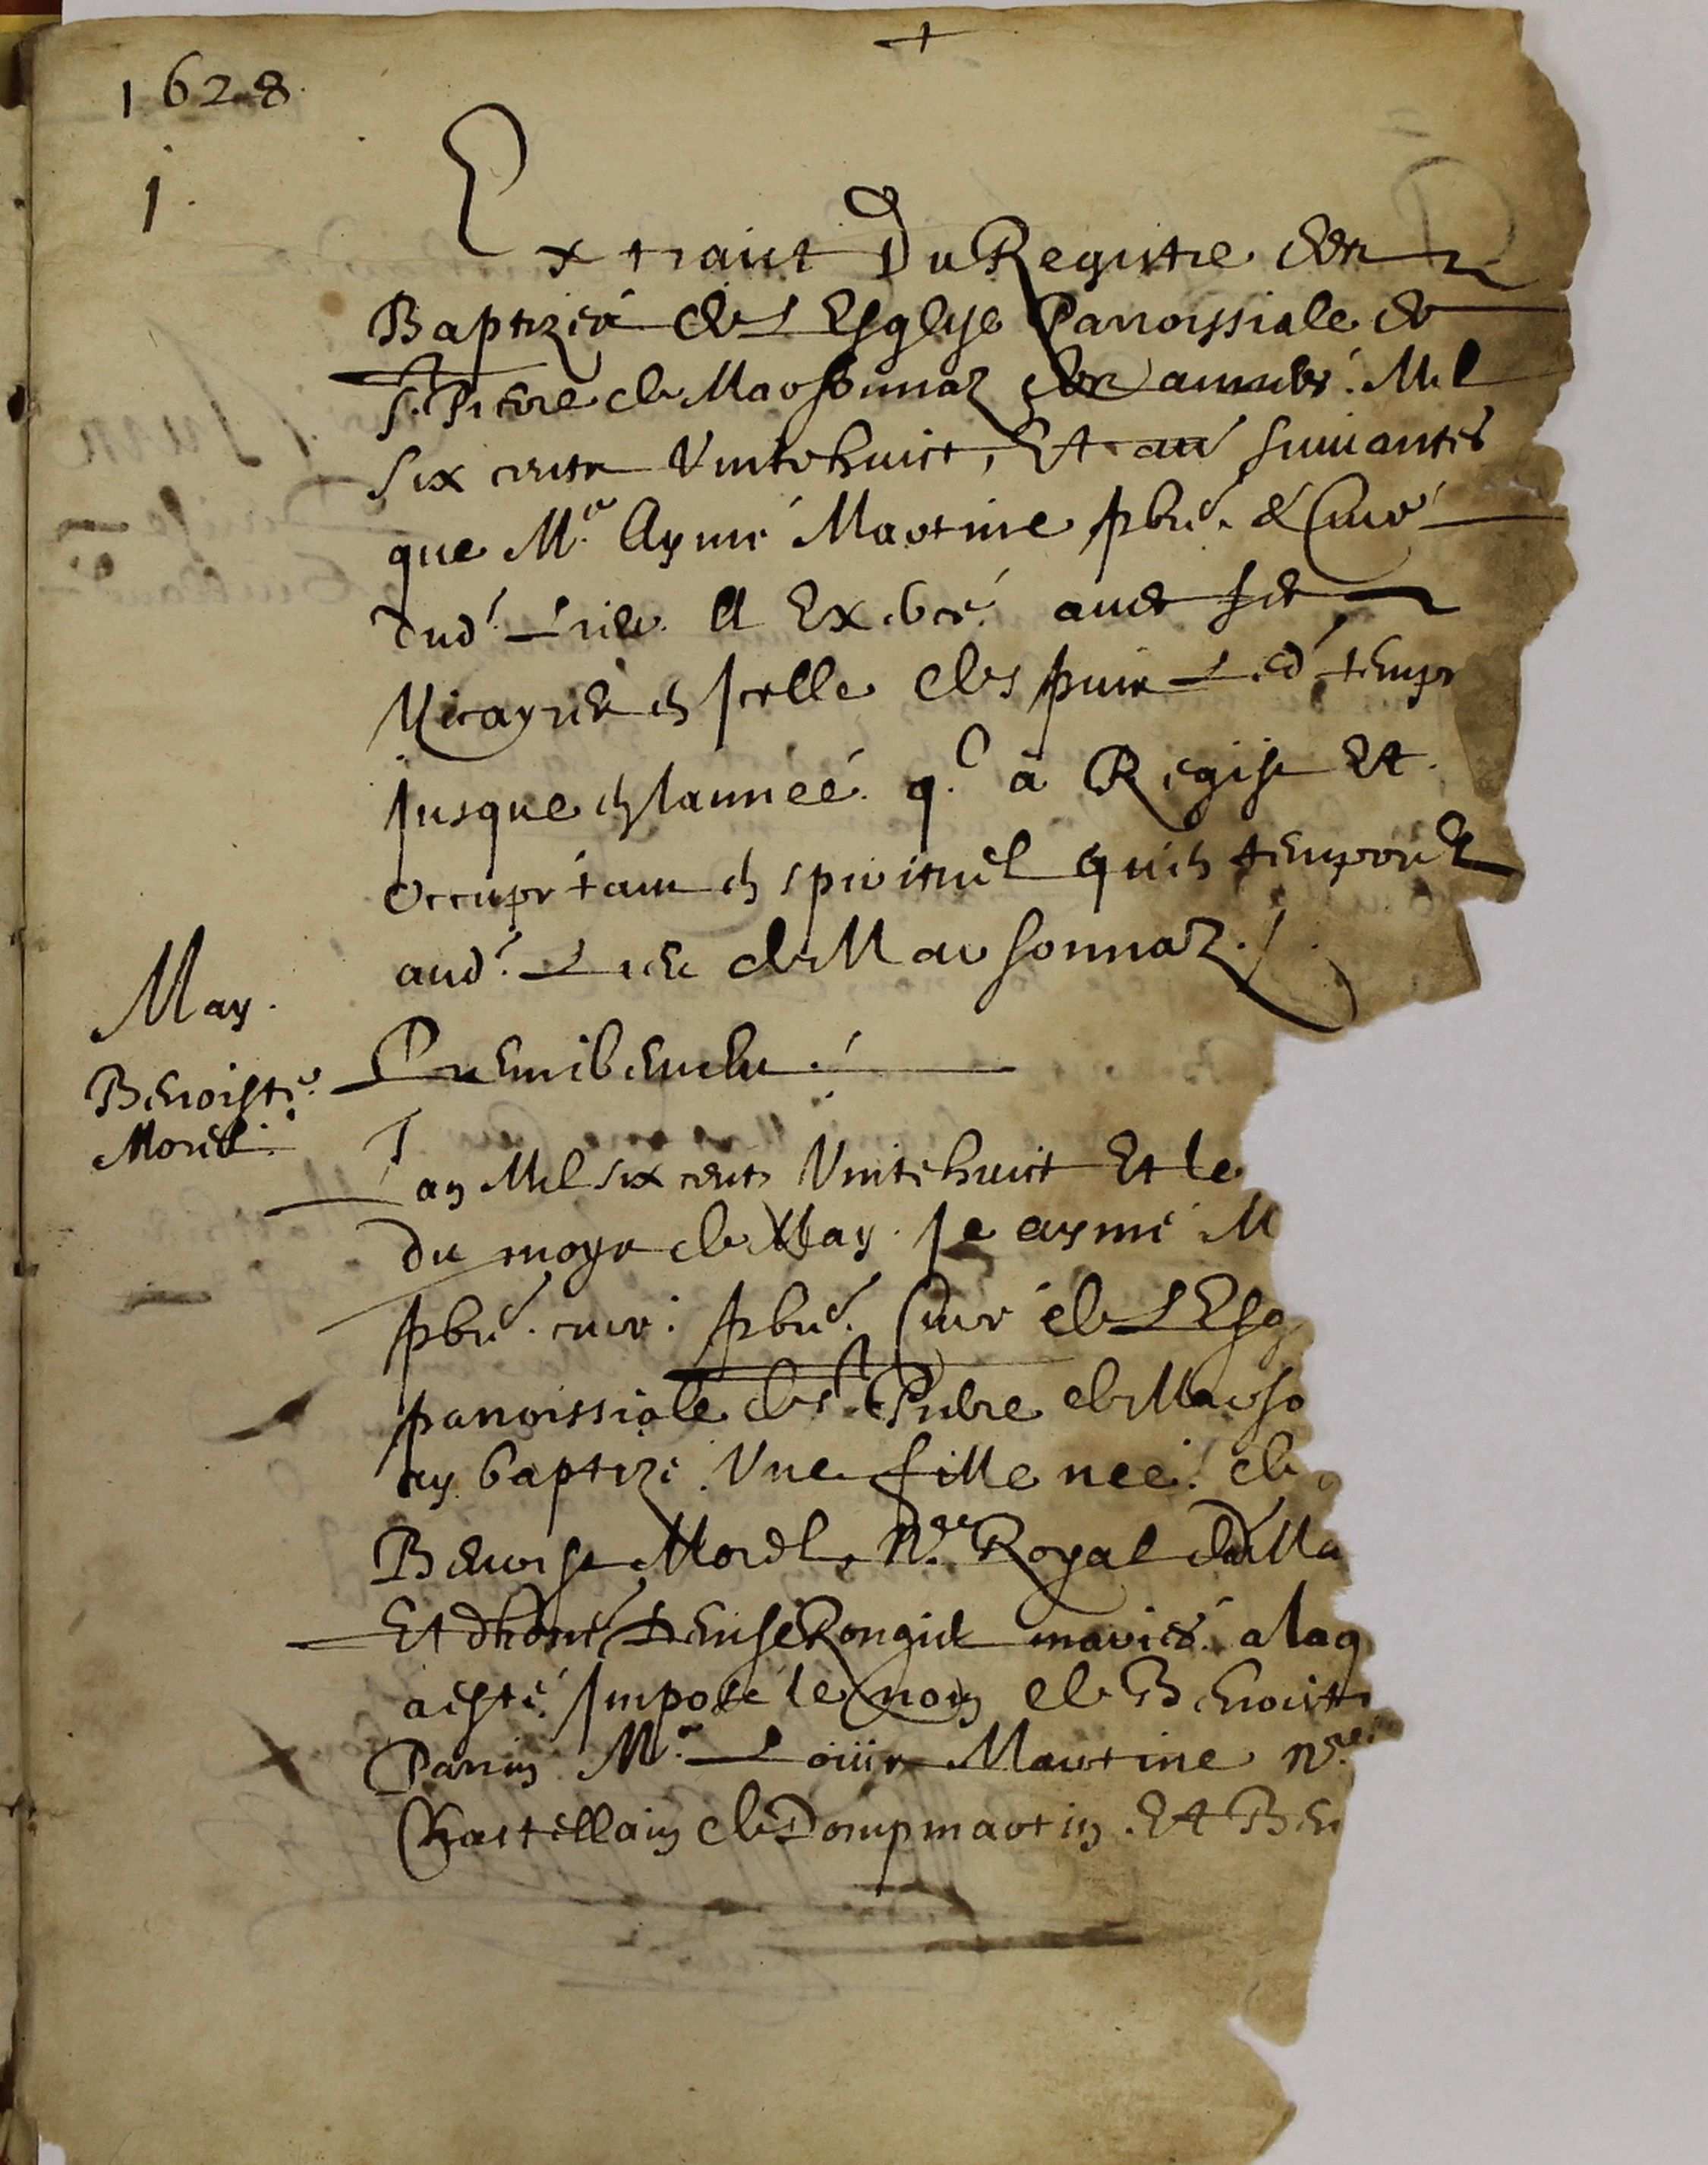 1628
1
Extraict Du Registre des
Baptizés de l'Esglise Parroissiale de
S. Pierre de Marsonnaz des années Mil
Six cents Vintehuict, Et suivantes
que Me Aymé Martine pbre & Curé
dud. Lieu A Exercé avec ses
Vicayres en Icelle despuis led temps
Jusque en lannéé q. à Regise Et
Occupe tant en spirituel qu'en temporel
aud. Lieu de Marsonnaz.
May.
Benoiste
Morel.
Premièrement
Lan Mil six cents Vintehuict Et le
du moys de May. Je aymé M
pbre. curé. pbre. Curé de L'Esg
parroissiale de St Pierre de Marso
ay baptizé Une fille néé de
Benoist Morel Nre Royal de Ma
Et dhoné Denise Rongiet mariés. a laq
a esté Imposé le nom de Benoiste
Parrin Me Louis Martine Nre
Chastellain de Dompmartin. Et Ben